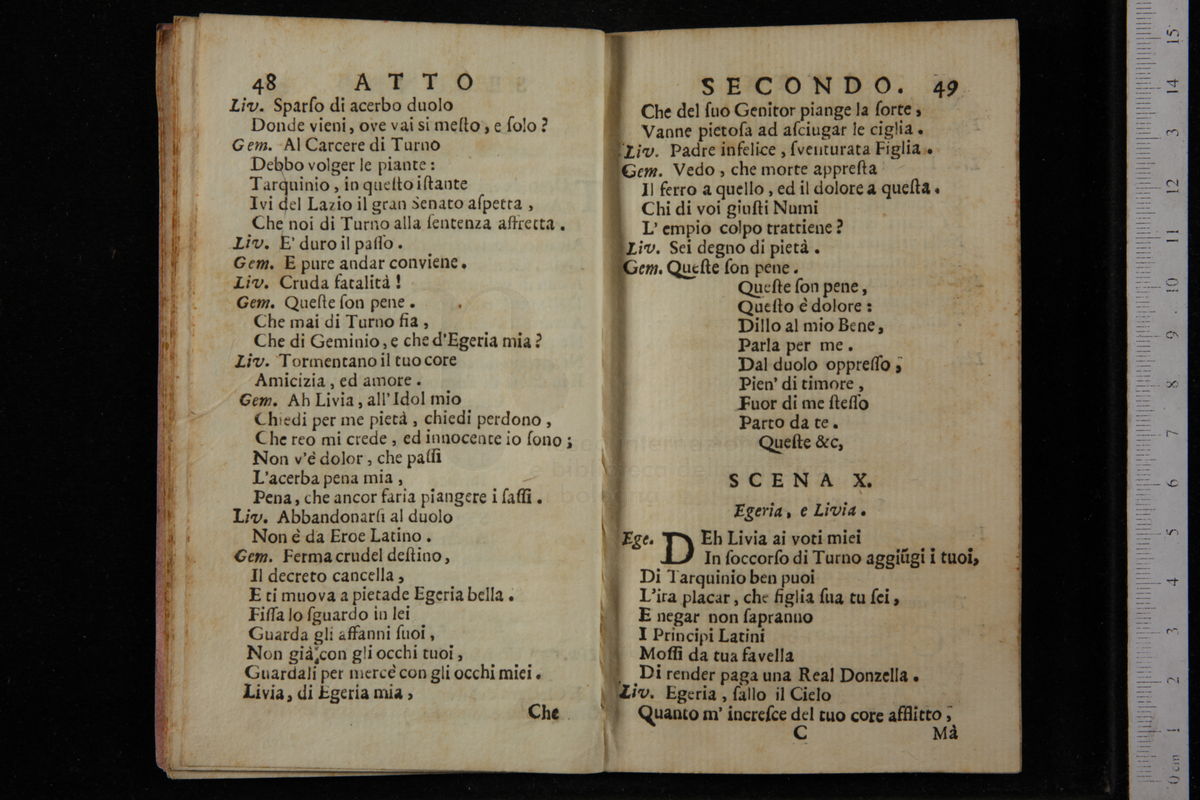 48 ATTO
Liv. Sparſo di acerbo duolo
Donde vieni, ove vai si meſto, e ſolo?
Gem. Al Carcere di Turno
Debbo volger le piante:
Tarquinio, in queſto iſtante
Ivi del Lazio il gran Senato aſpetta,
Che noi di Turno alla ſentenza affretta.
Liv. E' duro il paſſo.
Gem. E pure andar conviene.
Liv. Cruda fatalità!
Gem. Queſte ſon pene.
Che mai di Turno fia,
Che di Geminio, e che d'Egeria mia?
Liv. Tormentano il tuo core
Amicizia, ed amore.
Gem. Ah Livia, all'Idol mio
Chiedi per me pietà, chiedi perdono,
Che reo mi crede, ed innocente io ſono;
Non v'è dolor, che paſſi
L'acerba pena mia,
Pena, che ancor faria piangere i ſaſſi.
Liv. Abbandonarſi al duolo
Non è da Eroe Latino.
Gem. Ferma crudel deſtino,
Il decreto cancella,
E ti muova a pietade Egeria bella.
Fiſſa lo ſguardo in lei
Guarda gli affanni ſuoi,
Non già con gli occhi tuoi,
Guardali per mercè con gli occhi miei.
Livia, di Egeria mia,
Che
SECONDO. 49
Che del ſuo Genitor piange la ſorte,
Vanne pietoſa ad aſciugar le ciglia.
Liv. Padre infelice, ſventurata Figlia.
Gem. Vedo, che morte appreſta
Il ferro a quello, ed il dolore a queſta.
Chi di voi giuſti Numi
L' empio colpo trattiene?
Liv. Sei degno di pietà.
Gem. Queſte ſon pene.
Queſte ſon pene,
Queſto è dolore:
Dillo al mio Bene,
Parla per me.
Dal duolo oppreſſo,
Pien' di timore,
Fuor di me ſteſſo
Parto da te.
Queſte &c,
SCENA X.
Egeria, e Livia.
Ege. DEh Livia ai voti miei
In ſoccorſo di Turno aggiũgi i tuoi,
Di Tarquinio ben puoi
L'ira placar, che figlia ſua tu ſei,
E negar non ſapranno
I Principi Latini
Moſſi da tua favella
Di render paga una Real Donzella.
Liv. Egeria, ſallo il Cielo
Quanto m' increſce del tuo core afflitto,
C Mà
0 cm 1 2 3 4 5 6 7 8 9 10 11 12 13 14 15